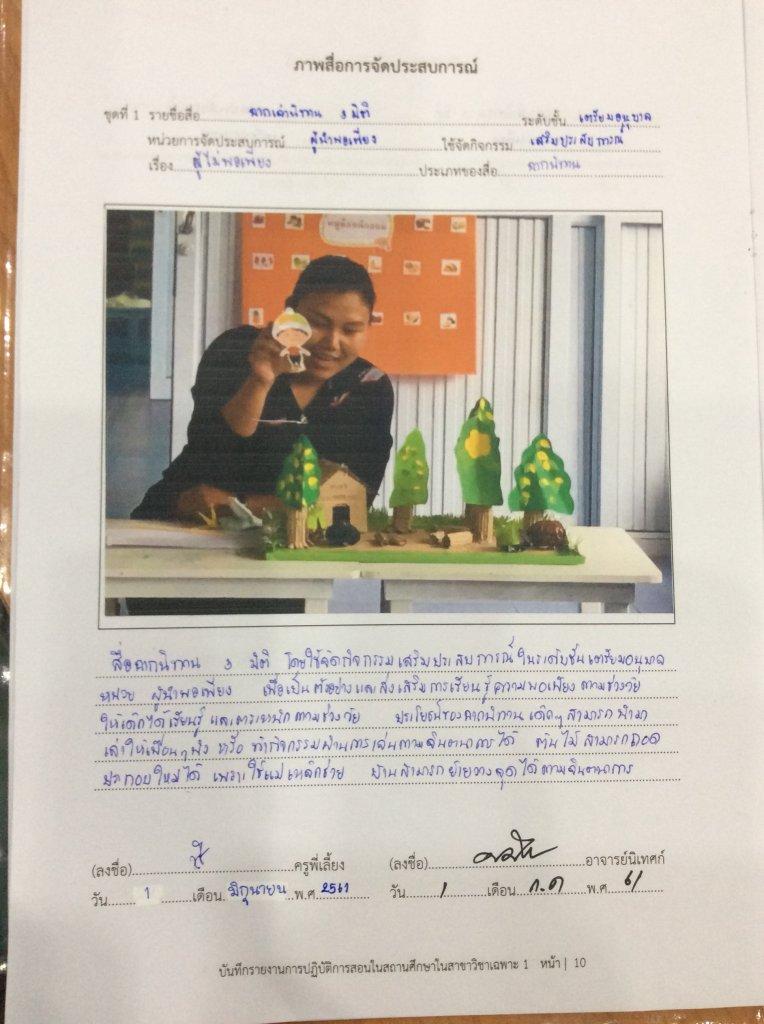 ภาพสื่อการจัดประสบการณ์
ชุดที่ 1 รายชื่อสื่อ ฉากเล่านิทาน 3 มิติ ระดับชั้น เตรียมอนุบาล
หน่วยการจัดประสบการณ์ ผู้นำพอเพียง ใช้จัดกิจกรรม เสริมประสบการณ์
เรื่อง ผู้ไม่พอเพียง ประเภทของสื่อ ฉากนิทาน
สื่อฉากนิทาน 3 มิติ โดยใช้จัดกิจกรรมเสริมประสบการณ์ในระดับชั้นเตรียมอนุบาล
หน่วย ผู้นำพอเพียง เพื่อเป็นตัวอย่างและส่งเสริมการเรียนรู้ความพอเพียงตามช่วงวัย
ให้เด็กได้เรียนรู้ และตระหนักตามช่วงวัย ประโยชน์ของฉากนิทาน เด็กๆ สามารถนำมา
เล่าให้เพื่อนๆ ฟัง หรือ ทำกิจกรรมผ่านการเล่นตามจินตนาการได้ ต้นไม้สามารถถอด
ประกอบใหม่ได้ เพราะใช้แม่เหล็กช่วย บ้านสามารถย้ายวางจุดได้ตามจินตนาการ
(ลงชื่อ) ครูพี่เลี้ยง (ลงชื่อ) อาจารย์นิเทศก์
วัน 1 เดือน มิถุนายน พ.ศ. 2561 วัน 1 เดือน ก.ค พ.ศ 61
บันทึกรายงานการปฏิบัติการสอนในสถานศึกษาในสาขาวิชาเฉพาะ 1 หน้า | 10